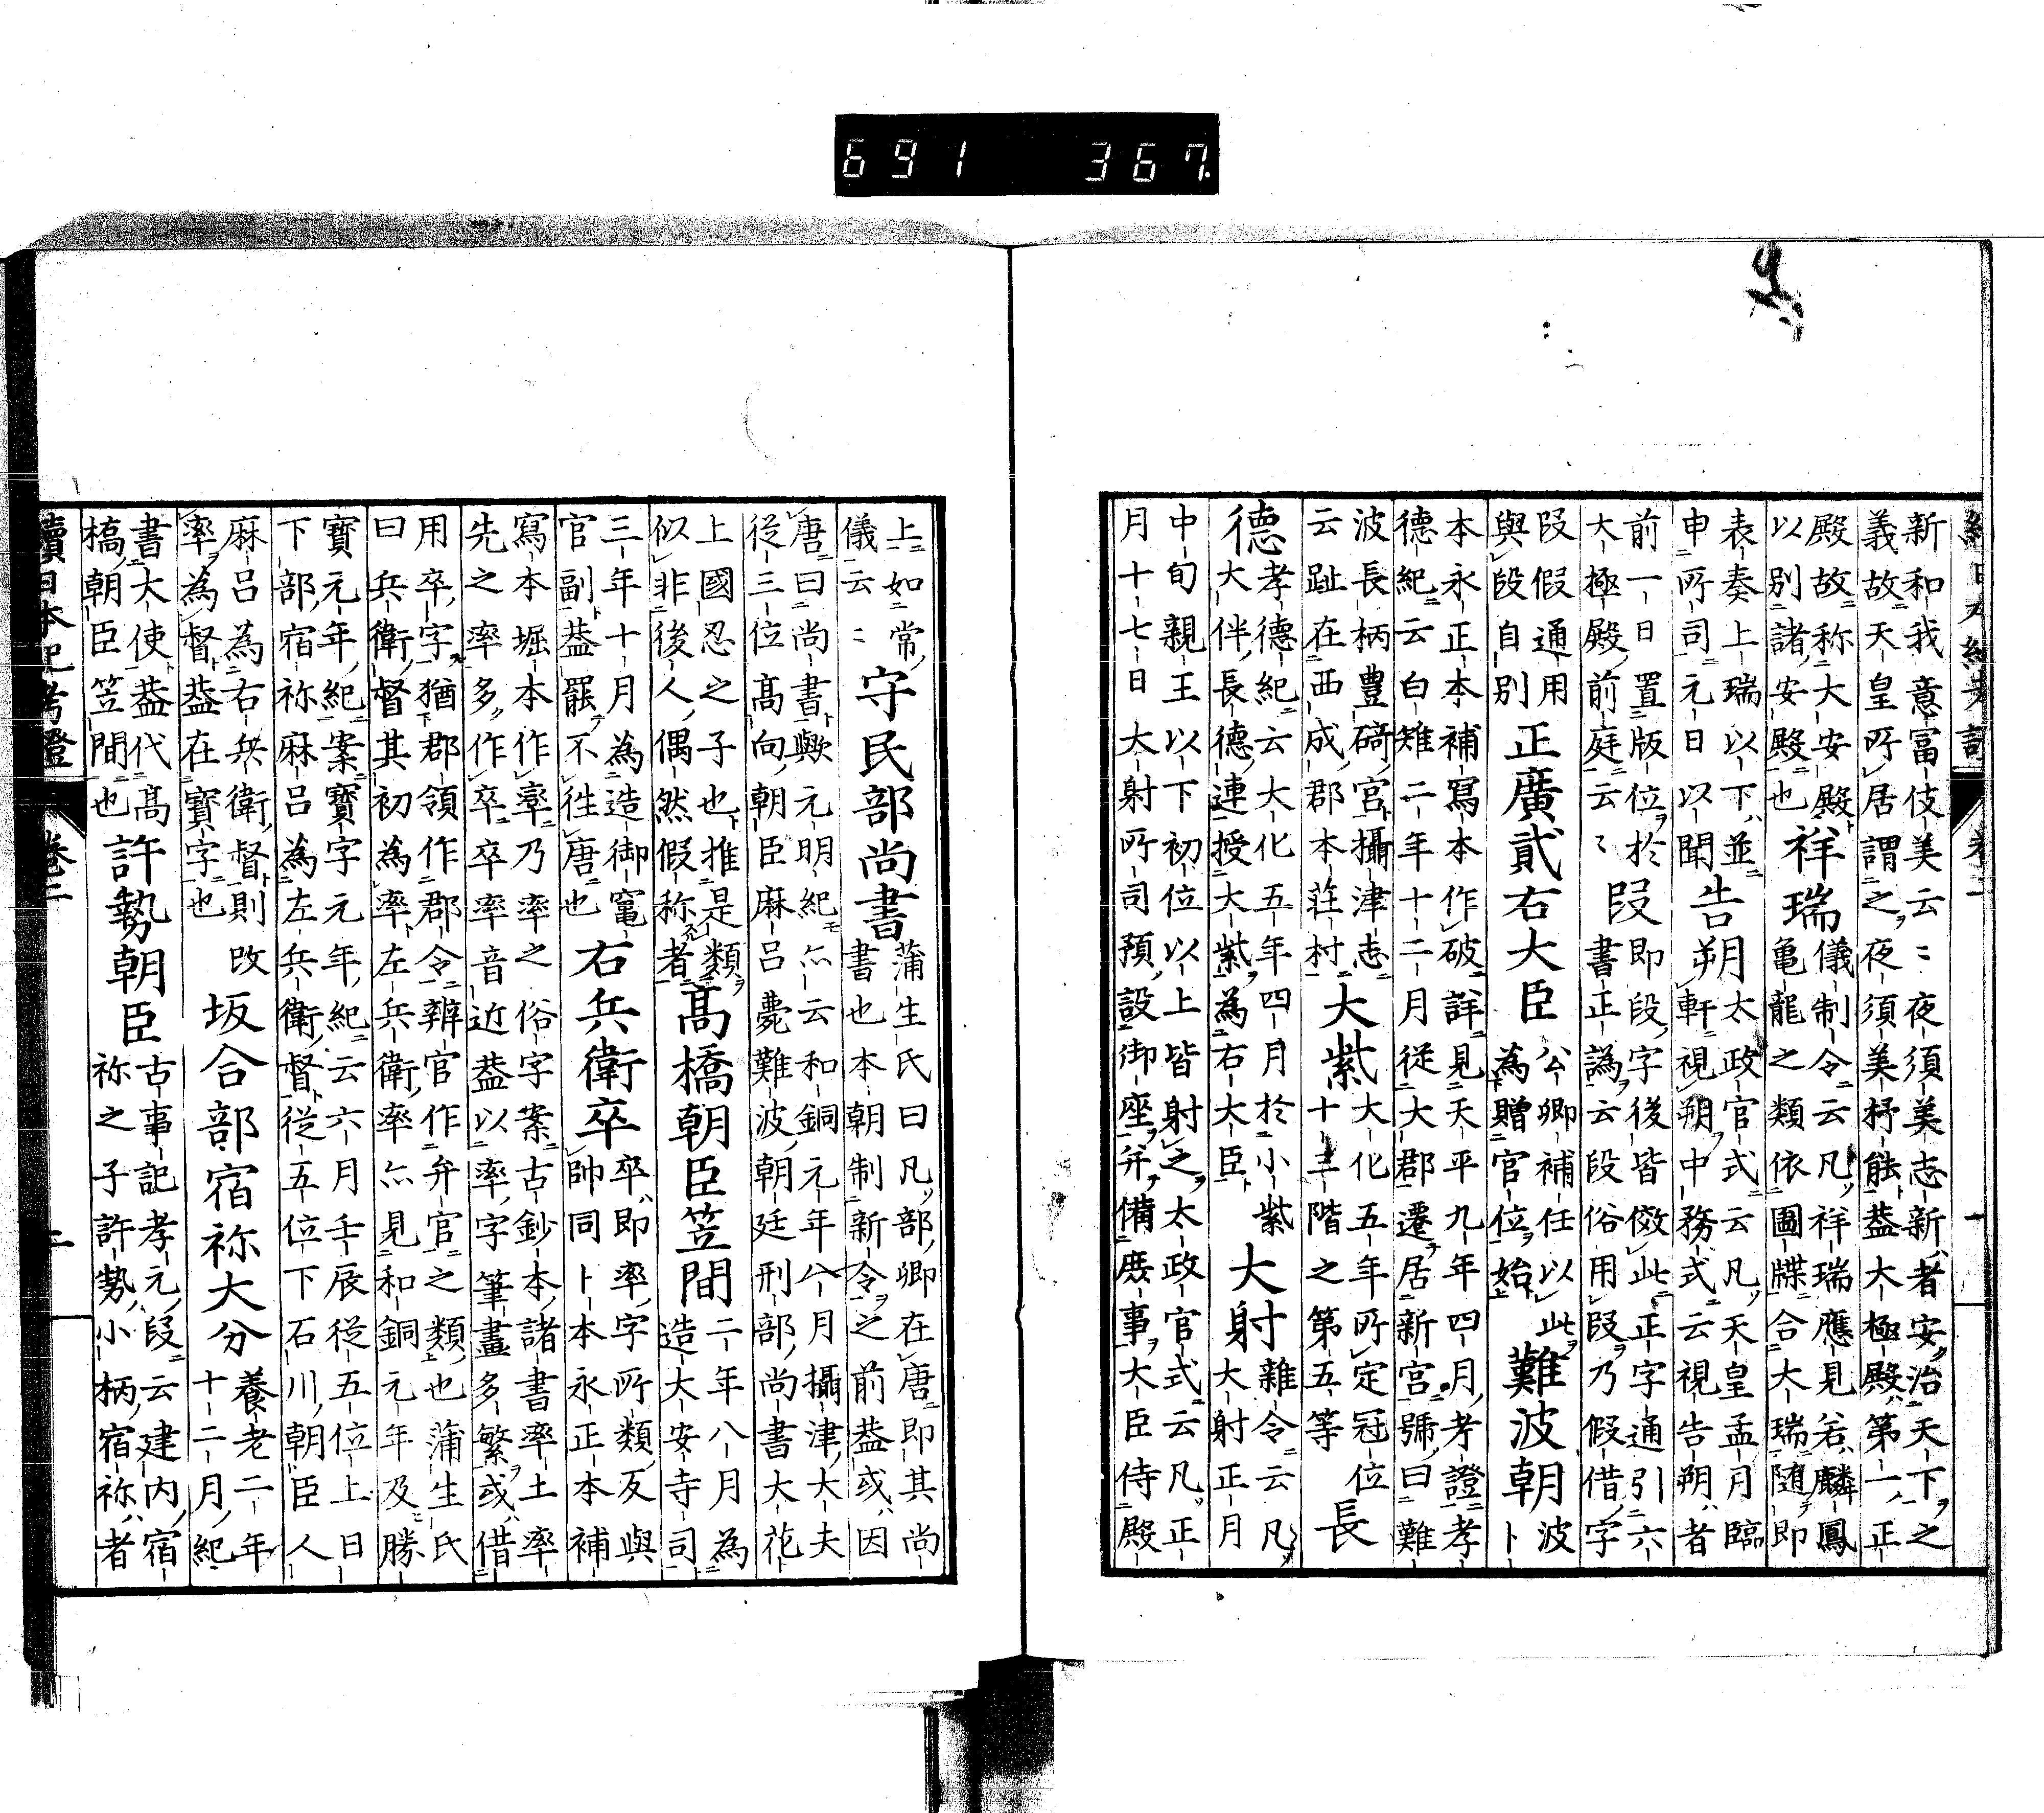 691 367
新和我意冨伎美云〻夜須美志新者安治天下之
義故天皇所居謂之夜須美杼能葢大極殿第一正
殿故称大安殿
以別諸安殿也
祥瑞
儀制令云凡祥瑞應見若麟鳳
亀龍之類依圖牒合大瑞随即
表奏上瑞以下並
申所司元日以聞
告朔
太政官式云凡天皇孟月臨
軒視朔中務式云視告朔者
前一日置版位於
大極殿前庭云〻
叚
即段字後皆倣此正字通引六
書正譌云段俗用叚乃假借字
叚假通用
與段自別
正廣貳右大臣
公卿補任以此
為贈官位始
難波朝
波卜
本永正本補寫本作破詳見天平九年四月考證孝
德紀云白雉二年十二月從大郡遷居新宮號曰難
波長柄豊碕宮攝津志
云趾在西成郡本莊村
大紫
大化五年所定冠位
十三階之第五等
長德
孝德紀云大化五年四月於小紫
大伴長德連授大紫為右大臣
大射
雜令云凡
大射正月
中旬親王以下初位以上皆射之太政官式云凡正
月十七日大射所司預設御座并備庶事大臣侍殿
上如常
儀云〻
守民部尚書
蒲生氏曰凡部卿在唐即其尚
書也本朝制新令之前葢或因
唐曰尚書歟元明紀亦云和銅元年八月攝津大夫
從三位髙向朝臣麻呂薨難波朝廷刑部尚書大花
上國忍之子也推是類
似非後人偶然假称者
髙橋朝臣笠間
二年八月為
造大安寺司
三年十月為造御竃
官副葢罷不徃唐也
右兵衛卒
卒即率字所類㕛與
帥同卜本永正本補
寫本堀本作率乃率之俗字案古鈔本諸書率土率
先之率多作卒卒率音近葢以率字筆畫多繁或借
用卒字猶郡領作郡令辨官作弁官之類也蒲生氏
曰兵衛督其初為率左兵衛率亦見和銅元年及勝
寳元年紀案寳字元年紀云六月壬辰從五位上日
下部宿祢麻呂為左兵衛督從五位下石川朝臣人
麻呂為右兵衛督則改
率為督葢在寳字也
坂合部宿祢大分
養老二年
十二月紀
書大使葢代髙
橋朝臣笠間也
許勢朝臣
古事記孝元段云建内宿
祢之子許勢小柄宿祢者
續日本紀考證
卷二
二